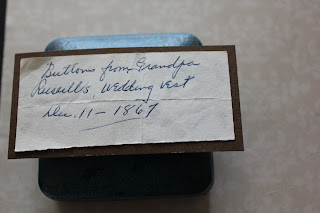 Buttons from Grandpa
Russell's, Wedding Vest
Dec. 11 - 1867